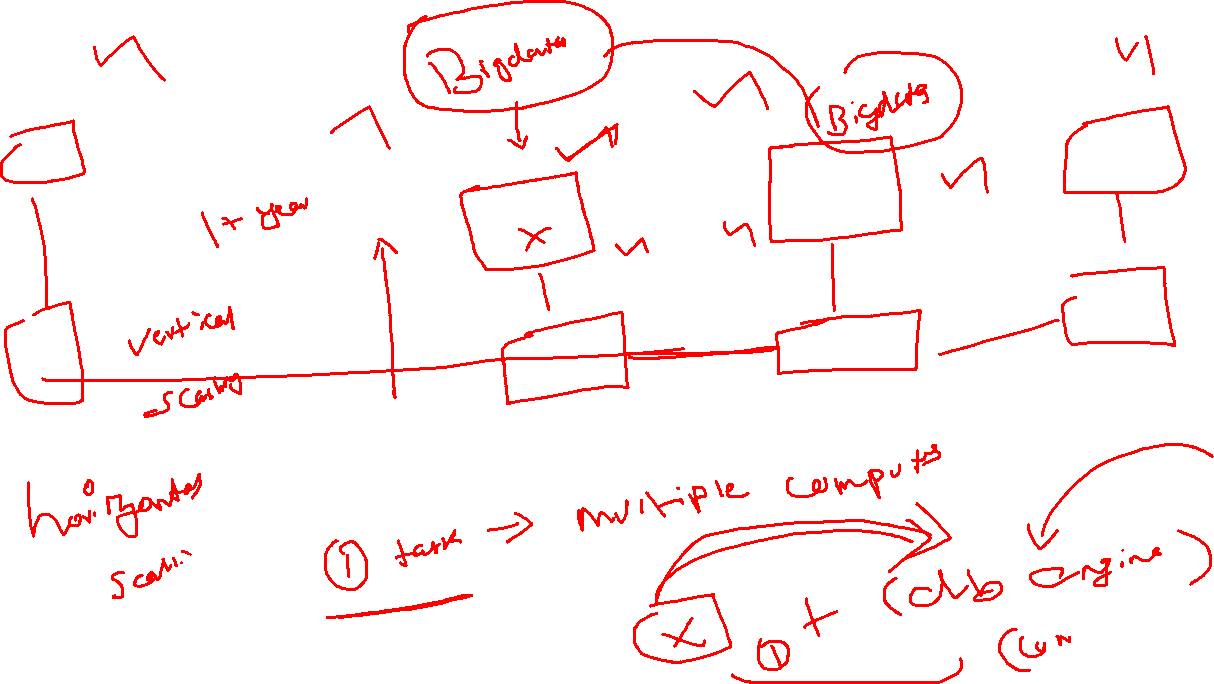 Bigdata
Bigdata
1+ year
vertical
scaling
horizontal
scali
① task → multiple computs
X
X
① + (db engine)
(com